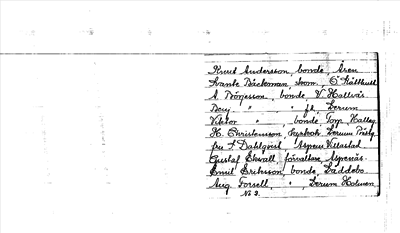 Knut Andersson, bonde, Åsen
Svante Bäckman, skom., Ö. Stättkull
A. Börjesson, bonde, V. Hallsås
Benj. " " fj. Lerum
Viktor " , bonde, Torp, Hallsg.
H. Christenson, kyrkoh. Lerum Prästg.
fru F. Dahlqvist, Aspen Villastad
Gustaf Ekvall, förvaltare, Aspenäs
Emil Eriksson, bonde, Läddebo
Aug. Forsell, " , Lerum Holmen
No 3.